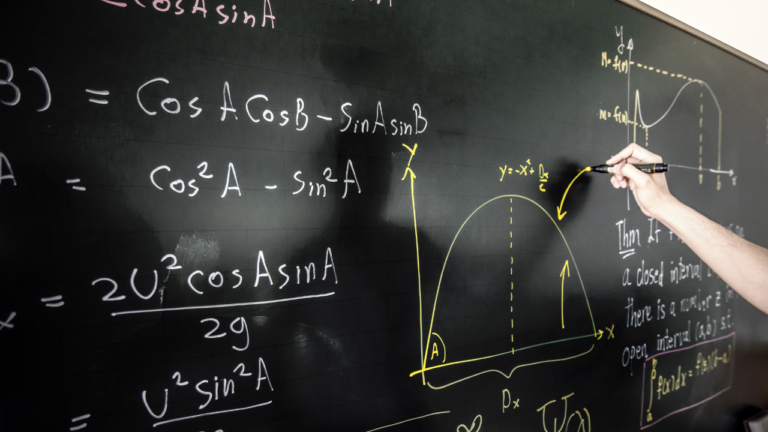 2cosAsinA
B) = CosACosB-SinAsinB
A = Cos²A - sin²A
x = 2U²cosAsinA
2g
= U²sin²A
Y
y=-x²+
A
x
Px
y
M=f(
m=f(
b
x
Thm If
a closed interval
there is a number
open interval (a,b) s.t.
∫ f(x)dx = f(z)(b-a)